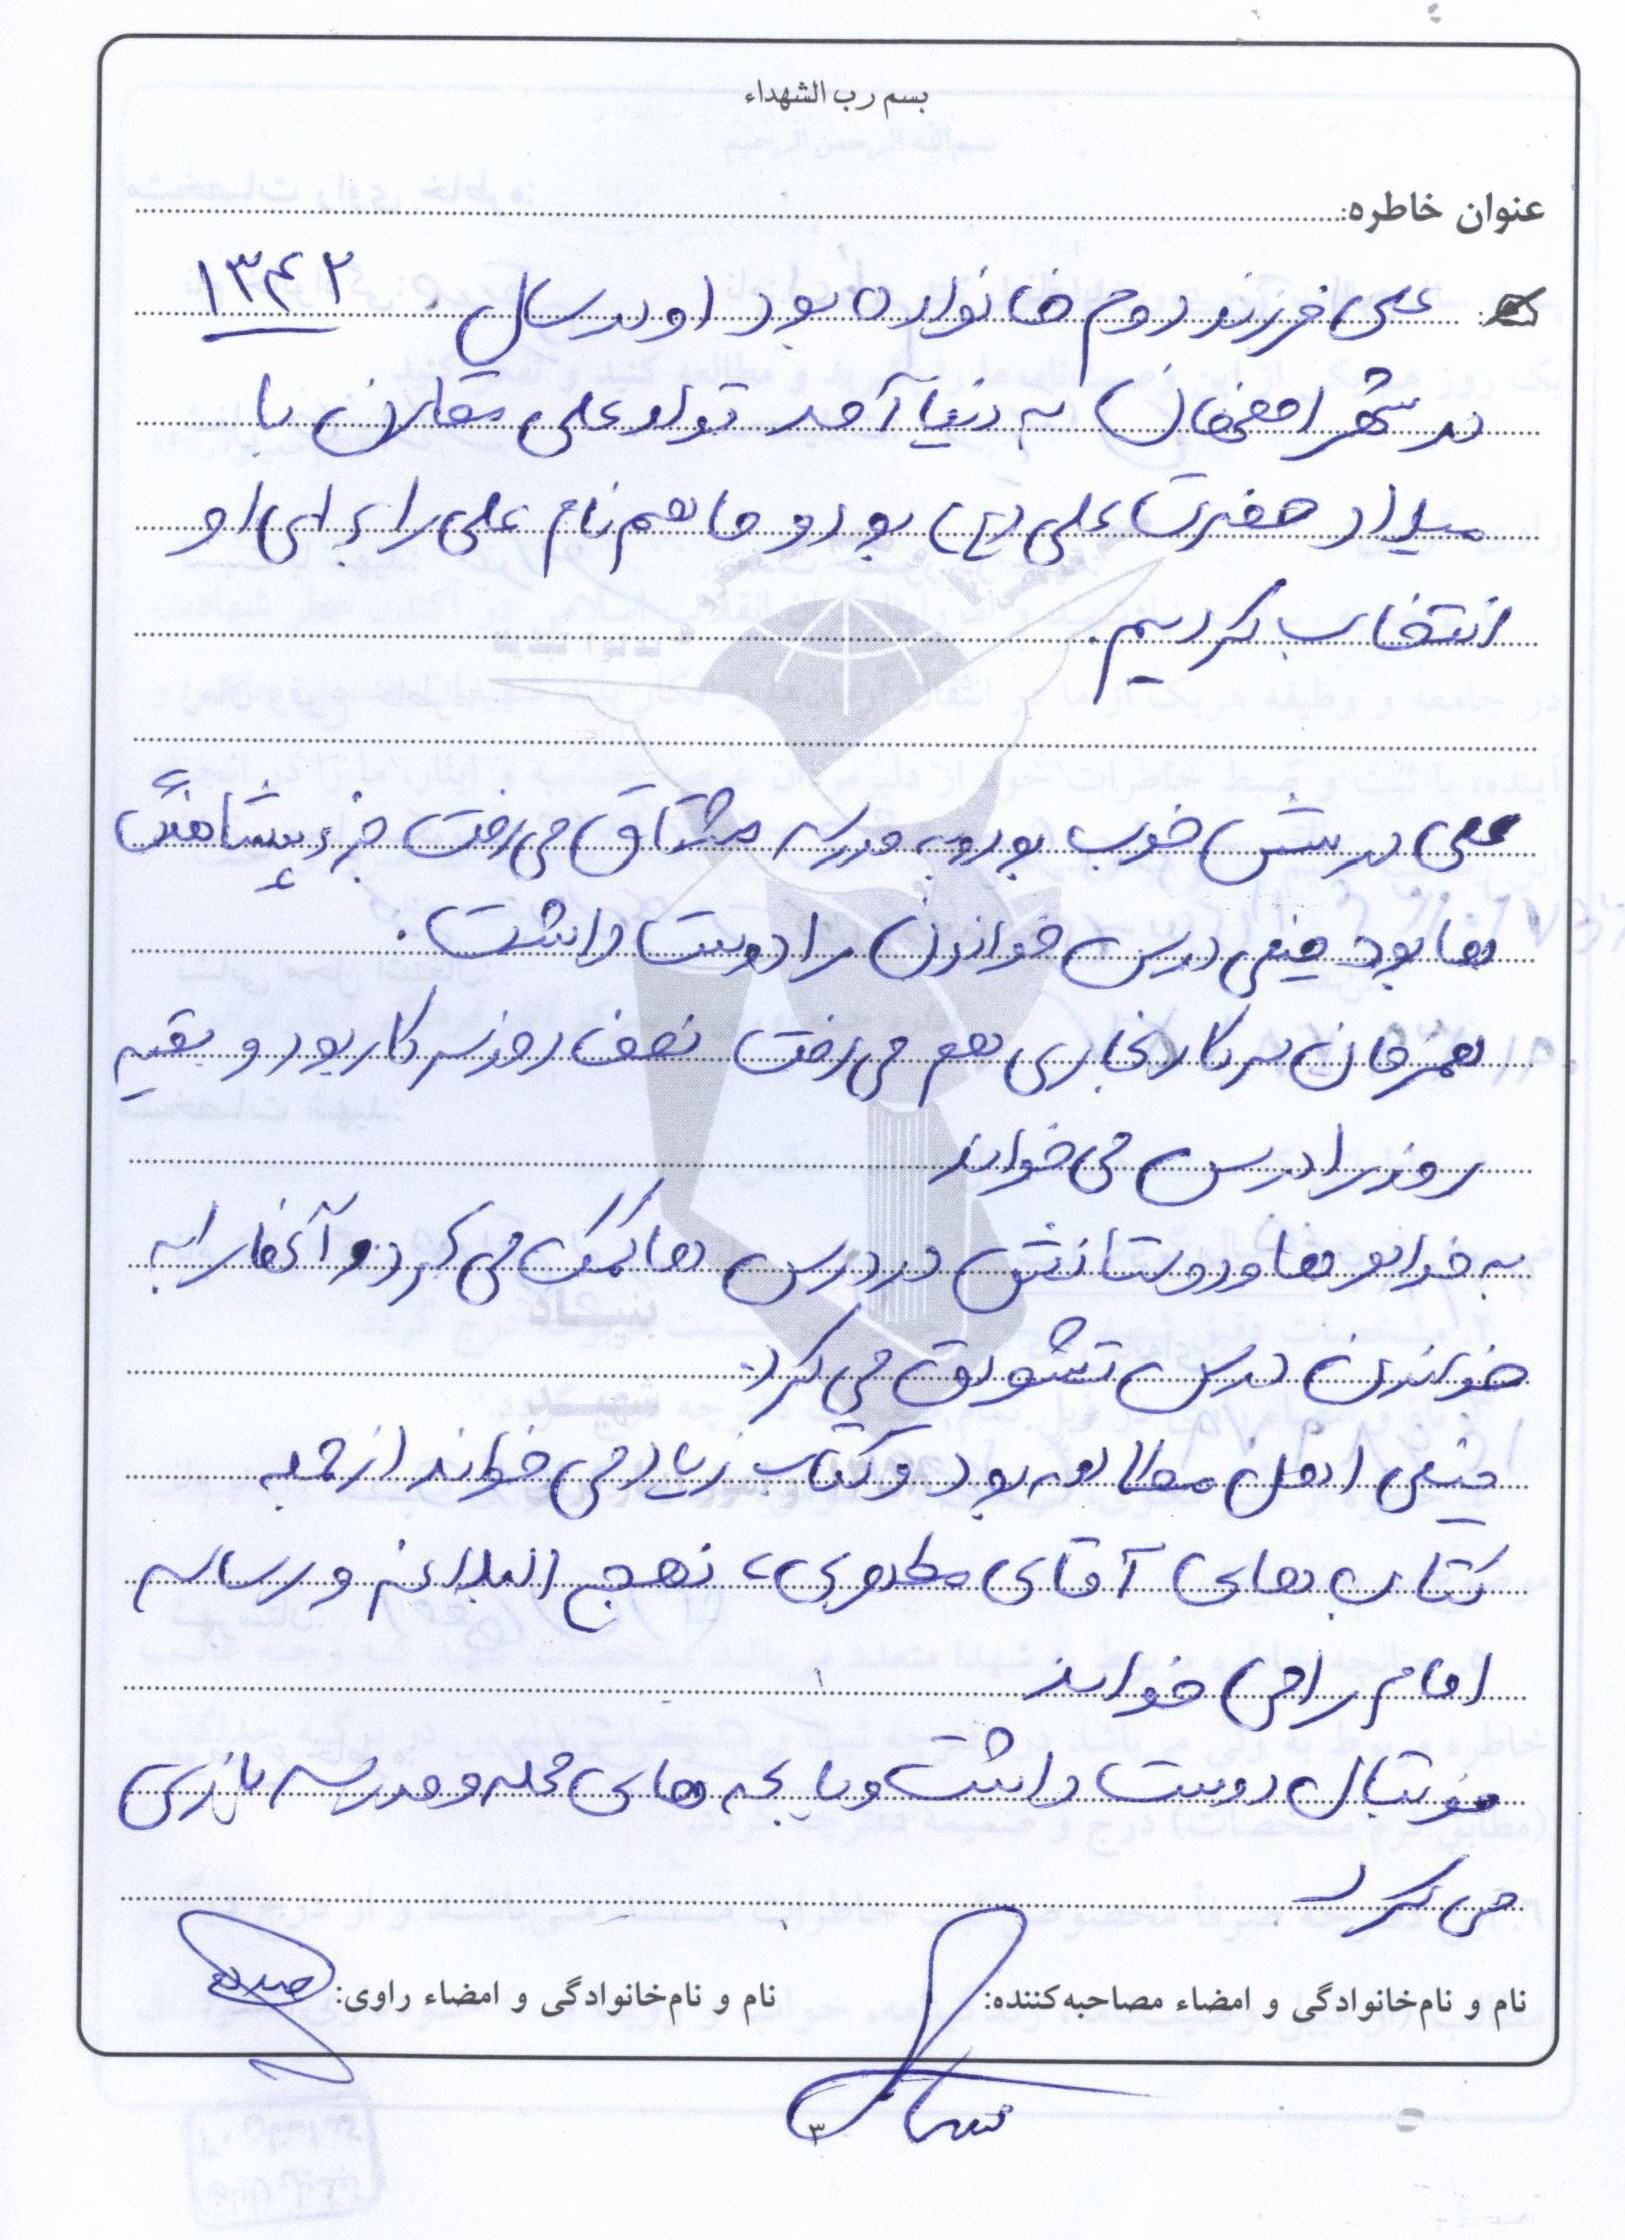 بسم رب الشهداء
عنوان خاطره:
علی فرزند دوم خانواده بود او در سال ۱۳۴۲
در شهر اصفهان به دنیا آمد تولد علی مقارن با
میلاد حضرت علی (ع) بود و ما هم نام علی را برای او
انتخاب کردیم.
علی درسش خوب بود و به مدرسه مشتاق می رفت جزء پیشاهنگ
ها بود خیلی درس خواندن را دوست داشت.
همزمان سر کار نجاری هم می رفت نصف روز سر کار بود و بقیه
روز را درس می خواند
به خواهرها و دوستانش در درس ها کمک می کرد و آنها را به
خواندن درس تشویق می کرد.
خیلی اهل مطالعه بود و کتاب زیاد می خواند از جمله
کتاب های آقای مطهری، نهج البلاغه و رساله
امام را می خواند
فوتبال دوست داشت و با بچه های محله و مدرسه بازی
می کرد
نام و نام‌خانوادگی و امضاء مصاحبه‌کننده: نام و نام‌خانوادگی و امضاء راوی:
۳